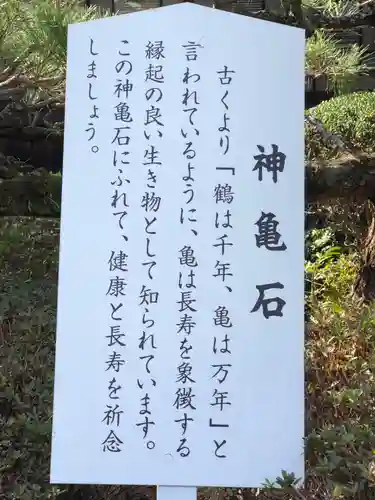 神亀石
古くより「鶴は千年、亀は万年」と
言われているように、亀は長寿を象徴する
縁起の良い生き物として知られています。
この神亀石にふれて、健康と長寿を祈念
しましょう。